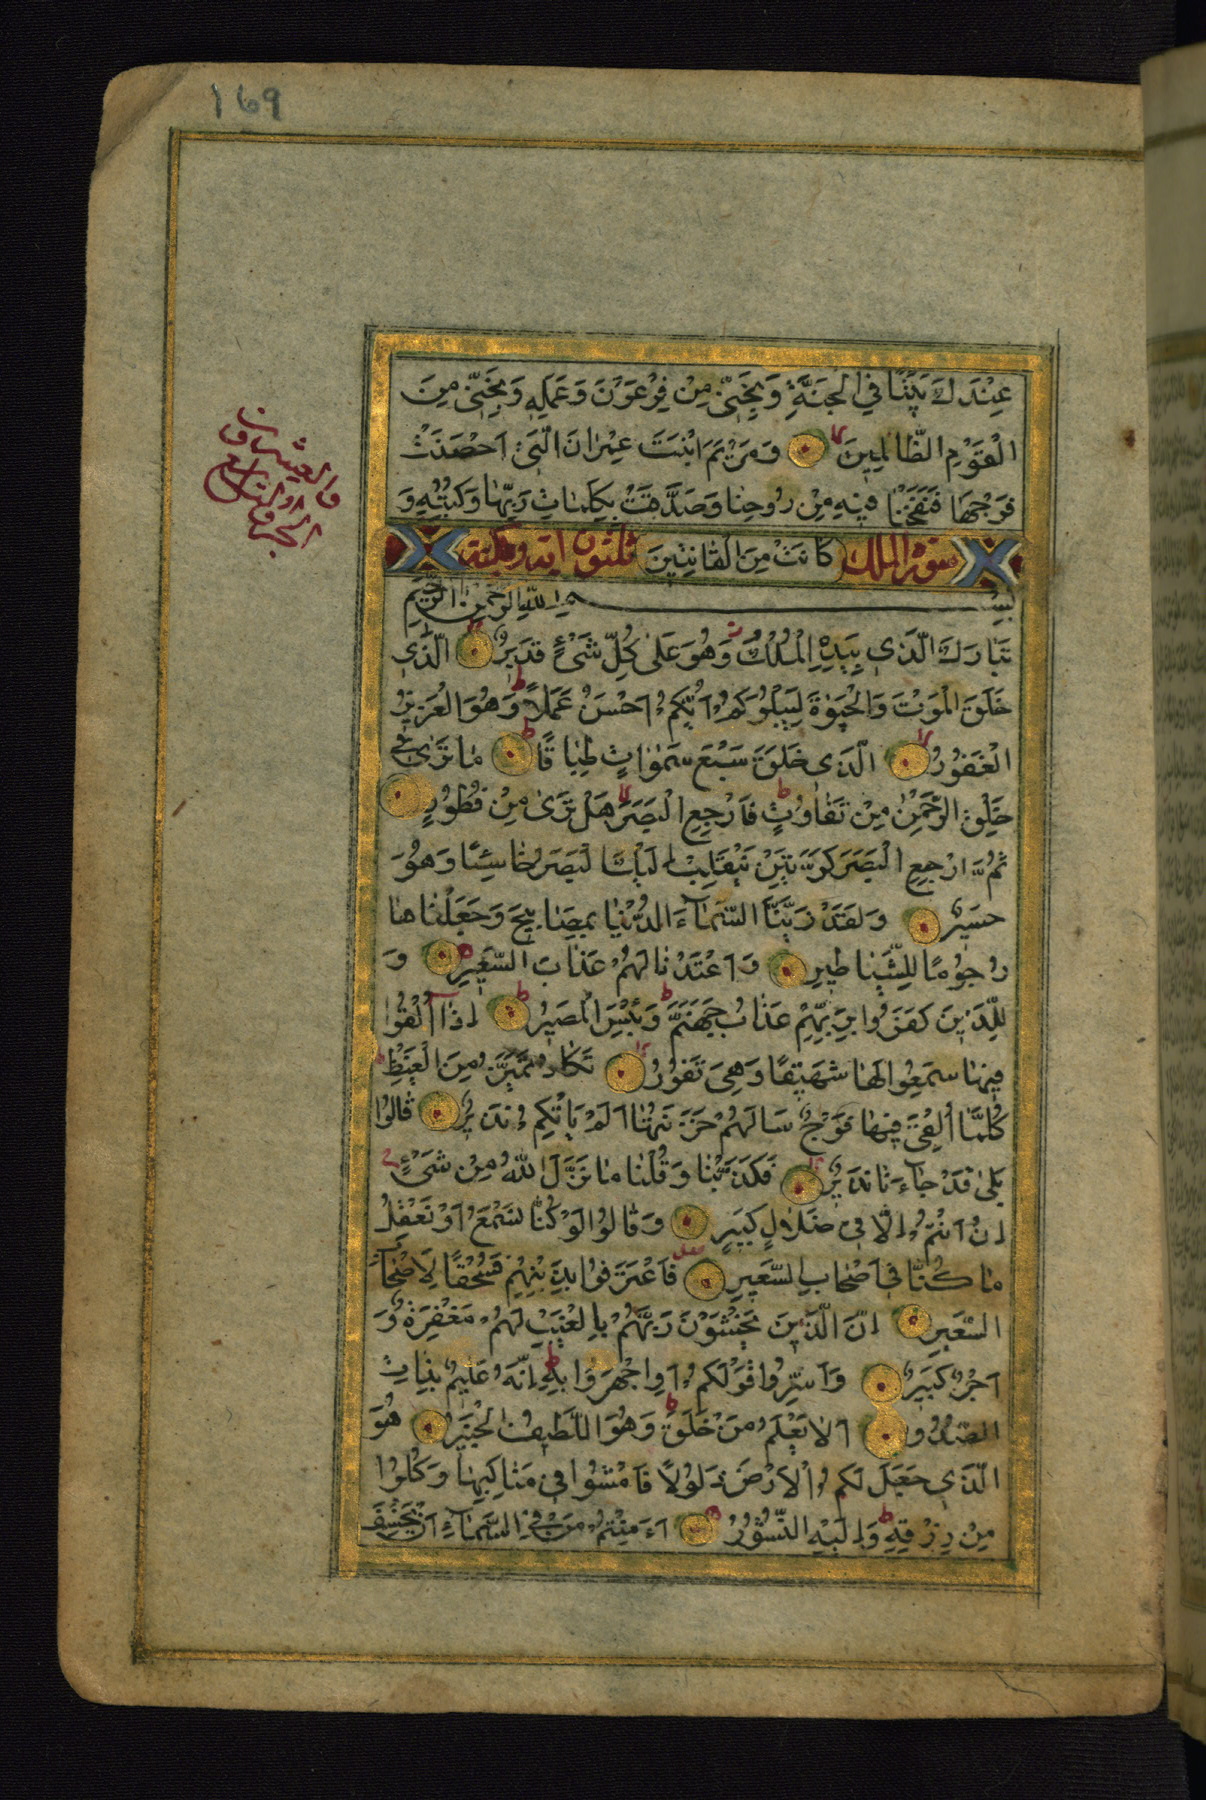 169
عِنْدَكَ بَيْتًا فِي الْجَنَّةِ وَنَجِّنِي مِنْ فِرْعَوْنَ وَعَمَلِهِ وَنَجِّنِي مِنَ
الْقَوْمِ الظَّالِمِينَ وَمَرْيَمَ ابْنَتَ عِمْرَانَ الَّتِي أَحْصَنَتْ
فَرْجَهَا فَنَفَخْنَا فِيهِ مِنْ رُوحِنَا وَصَدَّقَتْ بِكَلِمَاتِ رَبِّهَا وَكُتُبِهِ وَ
سورة الملك كَانَتْ مِنَ الْقَانِتِينَ ثلثون اية
بِسْمِ اللَّهِ الرَّحْمَٰنِ الرَّحِيمِ
تَبَارَكَ الَّذِي بِيَدِهِ الْمُلْكُ وَهُوَ عَلَىٰ كُلِّ شَيْءٍ قَدِيرٌ الَّذِي
خَلَقَ الْمَوْتَ وَالْحَيَوٰةَ لِيَبْلُوَكُمْ أَيُّكُمْ أَحْسَنُ عَمَلًا وَهُوَ الْعَزِيزُ
الْغَفُورُ الَّذِي خَلَقَ سَبْعَ سَمٰوَاتٍ طِبَاقًا مَا تَرَىٰ فِي
خَلْقِ الرَّحْمَٰنِ مِنْ تَفَاوُتٍ فَارْجِعِ الْبَصَرَ هَلْ تَرَىٰ مِنْ فُطُورٍ
ثُمَّ ارْجِعِ الْبَصَرَ كَرَّتَيْنِ يَنْقَلِبْ إِلَيْكَ الْبَصَرُ خَاسِئًا وَهُوَ
حَسِيرٌ وَلَقَدْ زَيَّنَّا السَّمَاءَ الدُّنْيَا بِمَصَابِيحَ وَجَعَلْنَاهَا
رُجُومًا لِلشَّيَاطِينِ وَأَعْتَدْنَا لَهُمْ عَذَابَ السَّعِيرِ وَ
لِلَّذِينَ كَفَرُوا بِرَبِّهِمْ عَذَابُ جَهَنَّمَ وَبِئْسَ الْمَصِيرُ إِذَا أُلْقُوا
فِيهَا سَمِعُوا لَهَا شَهِيقًا وَهِيَ تَفُورُ تَكَادُ تَمَيَّزُ مِنَ الْغَيْظِ
كُلَّمَا أُلْقِيَ فِيهَا فَوْجٌ سَأَلَهُمْ خَزَنَتُهَا أَلَمْ يَأْتِكُمْ نَذِيرٌ قَالُوا
بَلَىٰ قَدْ جَاءَنَا نَذِيرٌ فَكَذَّبْنَا وَقُلْنَا مَا نَزَّلَ اللَّهُ مِنْ شَيْءٍ
إِنْ أَنْتُمْ إِلَّا فِي ضَلَالٍ كَبِيرٍ وَقَالُوا لَوْ كُنَّا نَسْمَعُ أَوْ نَعْقِلُ
مَا كُنَّا فِي أَصْحَابِ السَّعِيرِ فَاعْتَرَفُوا بِذَنْبِهِمْ فَسُحْقًا لِأَصْحَابِ
السَّعِيرِ إِنَّ الَّذِينَ يَخْشَوْنَ رَبَّهُمْ بِالْغَيْبِ لَهُمْ مَغْفِرَةٌ وَ
أَجْرٌ كَبِيرٌ وَأَسِرُّوا قَوْلَكُمْ أَوِ اجْهَرُوا بِهِ إِنَّهُ عَلِيمٌ بِذَاتِ
الصُّدُورِ أَلَا يَعْلَمُ مَنْ خَلَقَ وَهُوَ اللَّطِيفُ الْخَبِيرُ هُوَ
الَّذِي جَعَلَ لَكُمُ الْأَرْضَ ذَلُولًا فَامْشُوا فِي مَنَاكِبِهَا وَكُلُوا
مِنْ رِزْقِهِ وَإِلَيْهِ النُّشُورُ أَأَمِنْتُمْ مَنْ فِي السَّمَاءِ أَنْ يَخْسِفَ